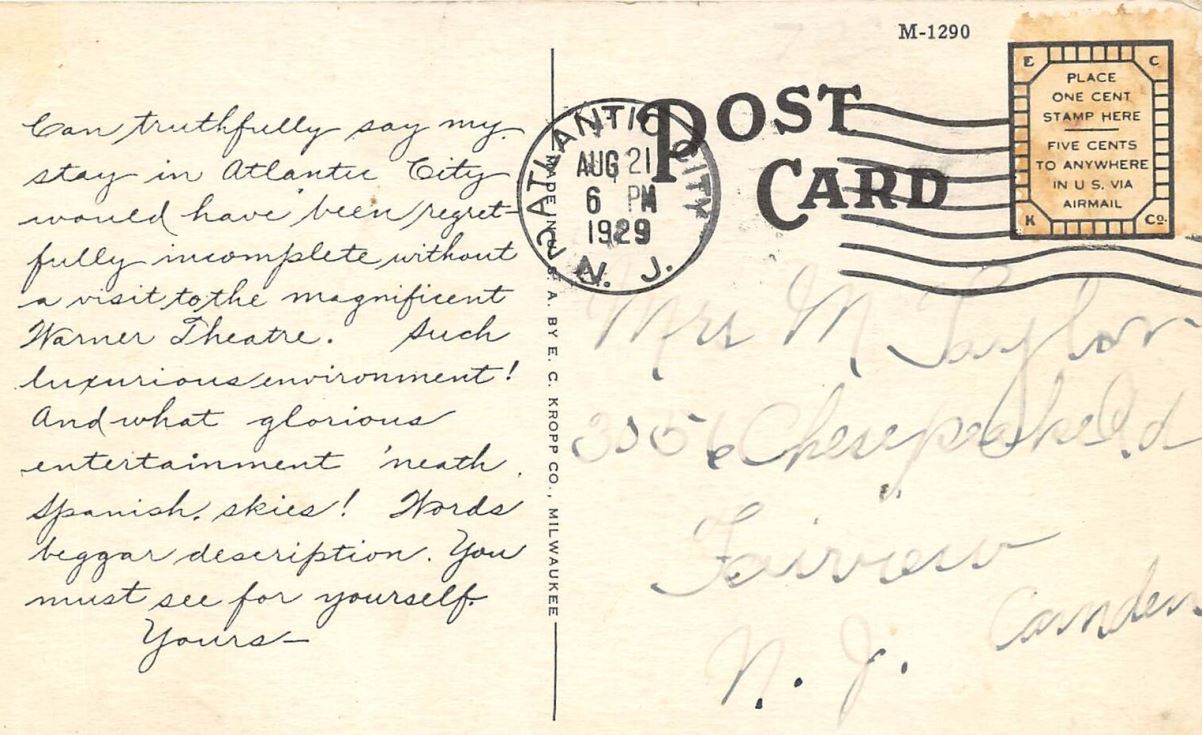 M-1290
POST
CARD
E C
PLACE
ONE CENT
STAMP HERE
FIVE CENTS
TO ANYWHERE
IN U S. VIA
AIRMAIL
K Co.
ATLANTIC CITY
AUG 21
6 PM
1929
N. J.
Can truthfully say my
stay in Atlantic City
would have been regret-
fully incomplete without
a visit to the magnificent
Warner Theatre. Such
luxurious environment!
And what glorious
entertainment 'neath
Spanish skies! Words
beggar description. You
must see for yourself.
Yours—
MADE IN U. S. A. BY E. C. KROPP CO., MILWAUKEE
Mrs M Taylor
Rd
Fairview
Camden
N. J.